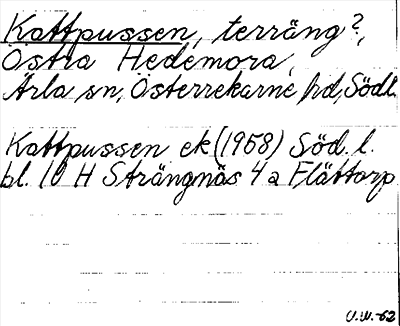 Kattpussen, terräng?,
Östra Hedemora,
Ärla sn, Österrekarne hd, Södl.
Kattpussen ek (1958) Söd. l.
bl. 10 H Strängnäs 4 a Flättorp
U.W.-62